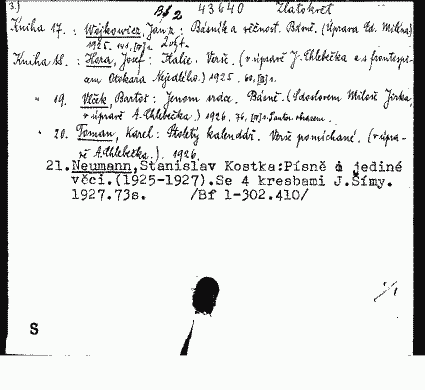 3.) Bf 2 43640 Zlatokvět
Kniha 17. : Wojkowicz, Jan z : Básník a věčnost. Básně. (Úprava Ed. Milína)
1925. 141. [III] s.
Kniha 18. : Hora, Josef : Italie. Verše. (v úpravě J. Chlebečka a s frontispi-
sem Otokara Nejedlého.) 1925. 60, [III] s.
" 19. Vlček, Bartoš : Jenom srdce. Básně. (S doslovem Miloše Jirka,
v úpravě A. Chlebečka.) 1926. 76, [III] s.
" 20. Toman, Karel : Stoletý kalendář. Verše pomíchané. (v úpra-
vě A. Chlebečka.). 1926.
21. Neumann, Stanislav Kostka: Písně o jediné
věci. (1925-1927). Se 4 kresbami J. Šímy.
1927.73s. /Bf 1-302.410/
S